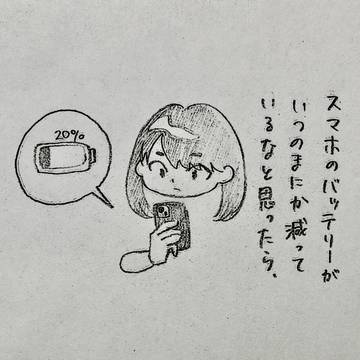 スマホのバッテリーが
いつのまにか減って
いるなと思ったら、
20%